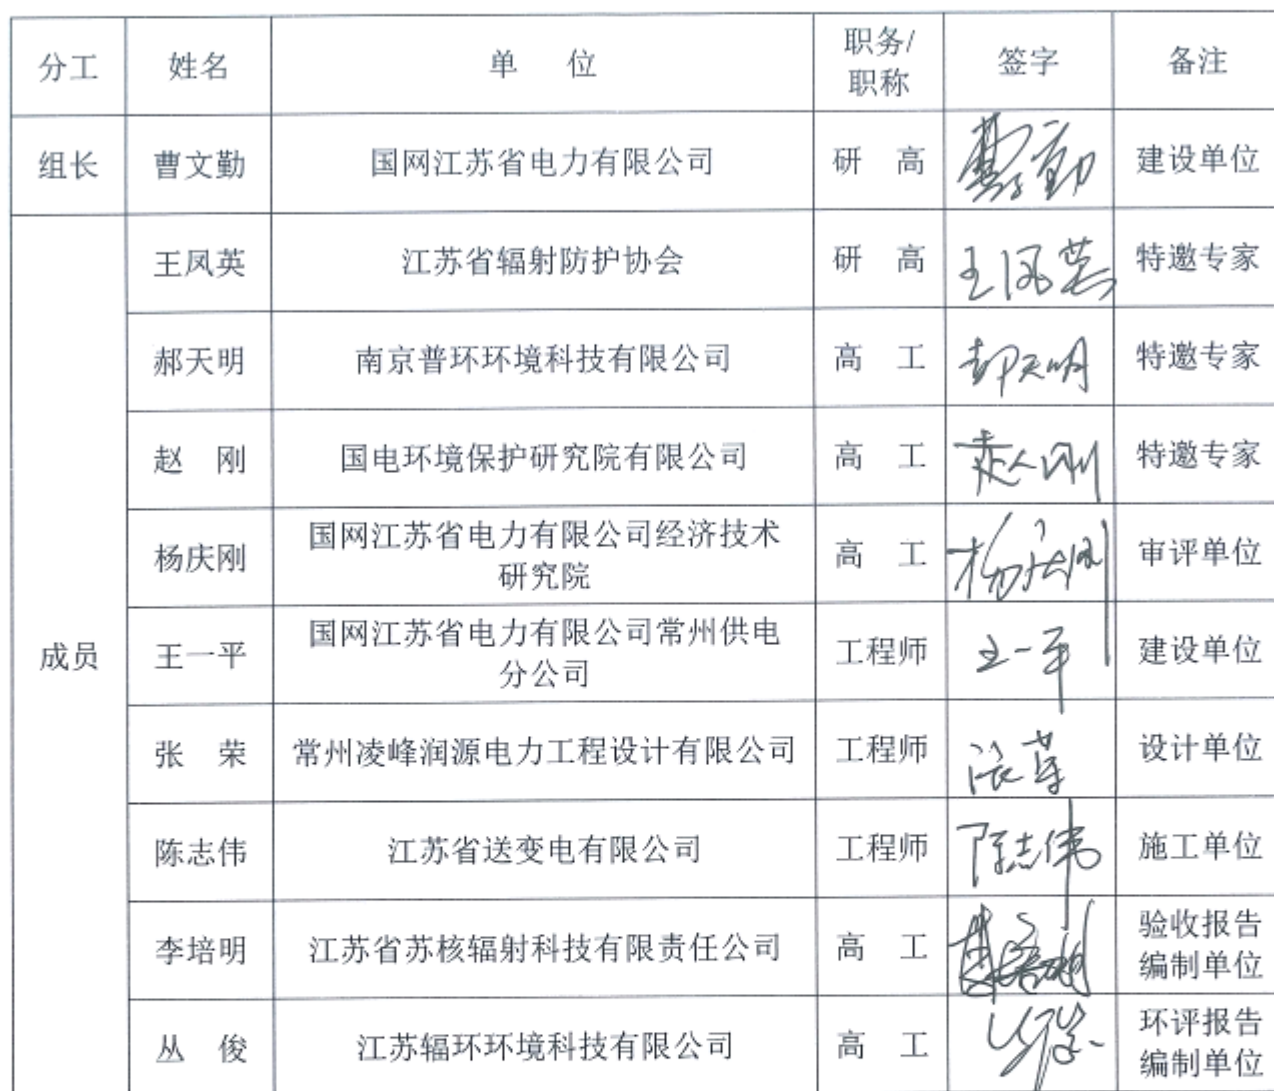 分工 姓名 单 位 职务/职称 签字 备注
组长 曹文勤 国网江苏省电力有限公司 研 高 曹文勤 建设单位
成员
王凤英 江苏省辐射防护协会 研 高 王凤英 特邀专家
郝天明 南京普环环境科技有限公司 高 工 郝天明 特邀专家
赵 刚 国电环境保护研究院有限公司 高 工 赵刚 特邀专家
杨庆刚 国网江苏省电力有限公司经济技术
研究院 高 工 杨庆刚 审评单位
王一平 国网江苏省电力有限公司常州供电
分公司 工程师 王一平 建设单位
张 荣 常州凌峰润源电力工程设计有限公司 工程师 张荣 设计单位
陈志伟 江苏省送变电有限公司 工程师 陈志伟 施工单位
李培明 江苏省苏核辐射科技有限责任公司 高 工 李培明 验收报告
编制单位
丛 俊 江苏辐环环境科技有限公司 高 工 丛俊 环评报告
编制单位